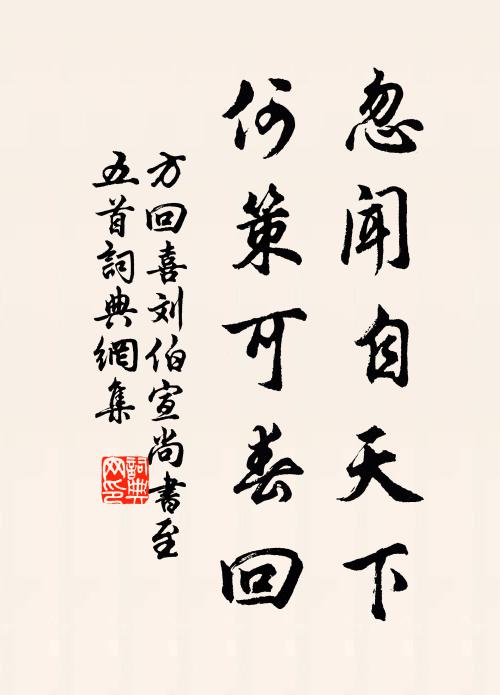 忽闻自天下
何策可春回
方回喜刘伯宣尚書至
五首詞典網集
詞典
网印